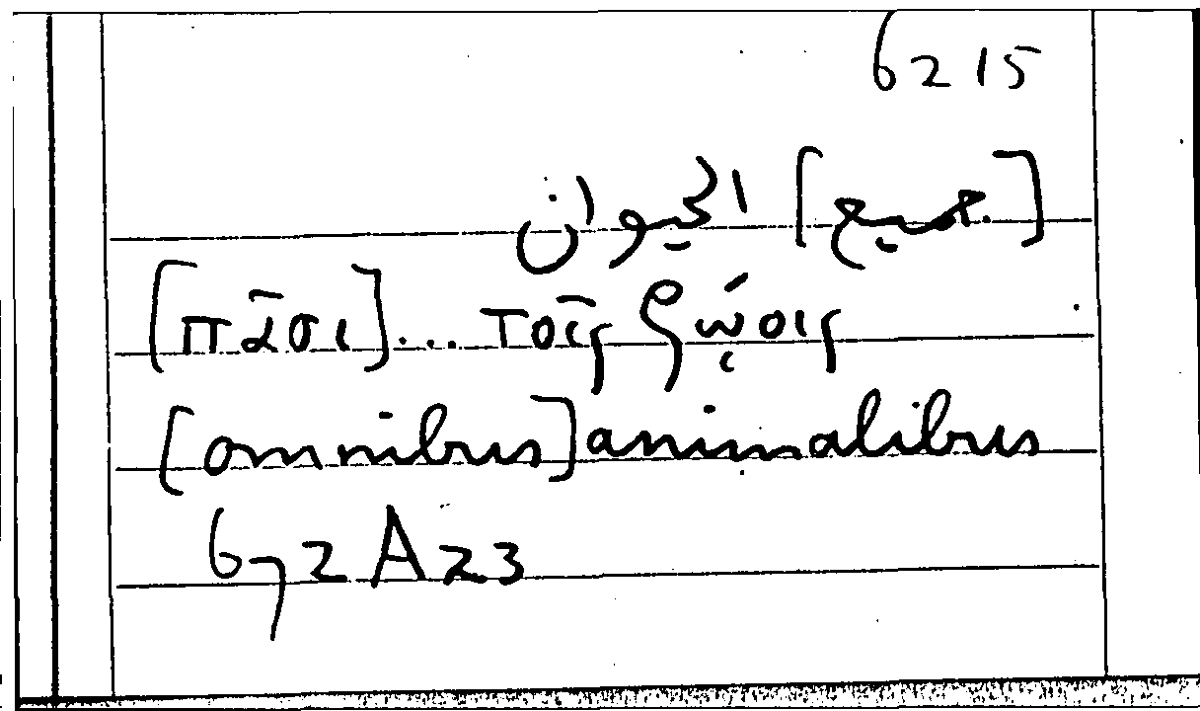 6215
[جميع] الحيوان
[πᾶσι]... τοῖς ζῴοις
[omnibus] animalibus
672A23